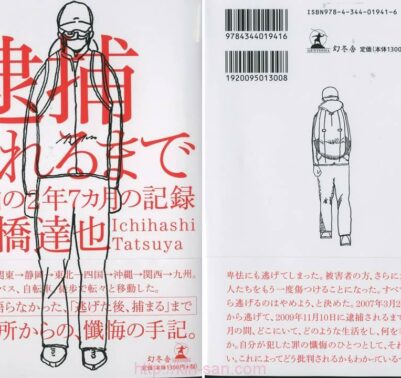 逮捕
れるまで
の2年7カ月の記録
橋達也
Ichihashi
Tatsuya
関東→静岡→東北→四国→沖縄→関西→九州。
バス、自転車、徒歩で転々と移動した。
語らなかった、「逃げた後、捕まる」まで
所からの、懺悔の手記。
幻冬舎 定価(本体1300円+税)
ISBN978-4-344-01941-6
9784344019416
1920095013008
幻冬舎
定価(本体1300
卑怯にも逃げてしまった。被害者の方、さらに
人たちをもう一度傷つけることになった。すべて
ら逃げるのはやめよう、と決めた。2007年3月2
から逃げて、2009年11月10日に逮捕されるまで
月の間、どこにいて、どのような生活をし、何を
か。自分が犯した罪の懺悔のひとつとして、それ
い。これによってどう批判されるかもわかっている